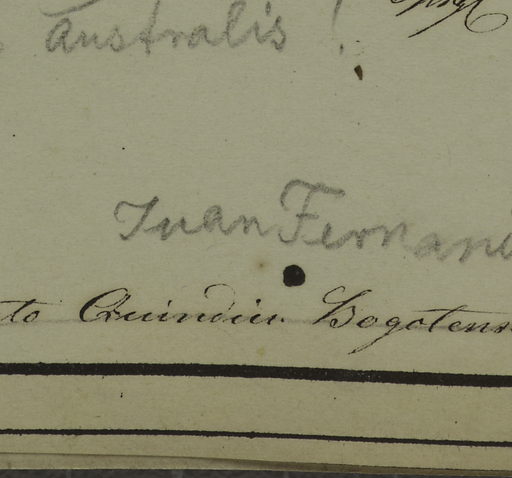 australis!
Juan Fernan
to Quindiu Bogotens